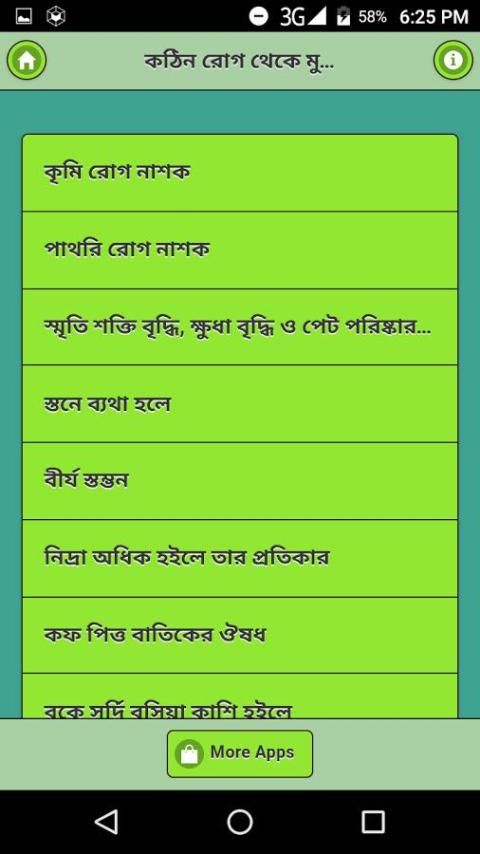 3G 58% 6:25 PM
কঠিন রোগ থেকে মু...
কৃমি রোগ নাশক
পাথরি রোগ নাশক
স্মৃতি শক্তি বৃদ্ধি, ক্ষুধা বৃদ্ধি ও পেট পরিষ্কার...
স্তনে ব্যথা হলে
বীর্য স্তম্ভন
নিদ্রা অধিক হইলে তার প্রতিকার
কফ পিত্ত বাতিকের ঔষধ
বুকে সর্দি বসিয়া কাশি হইলে
More Apps